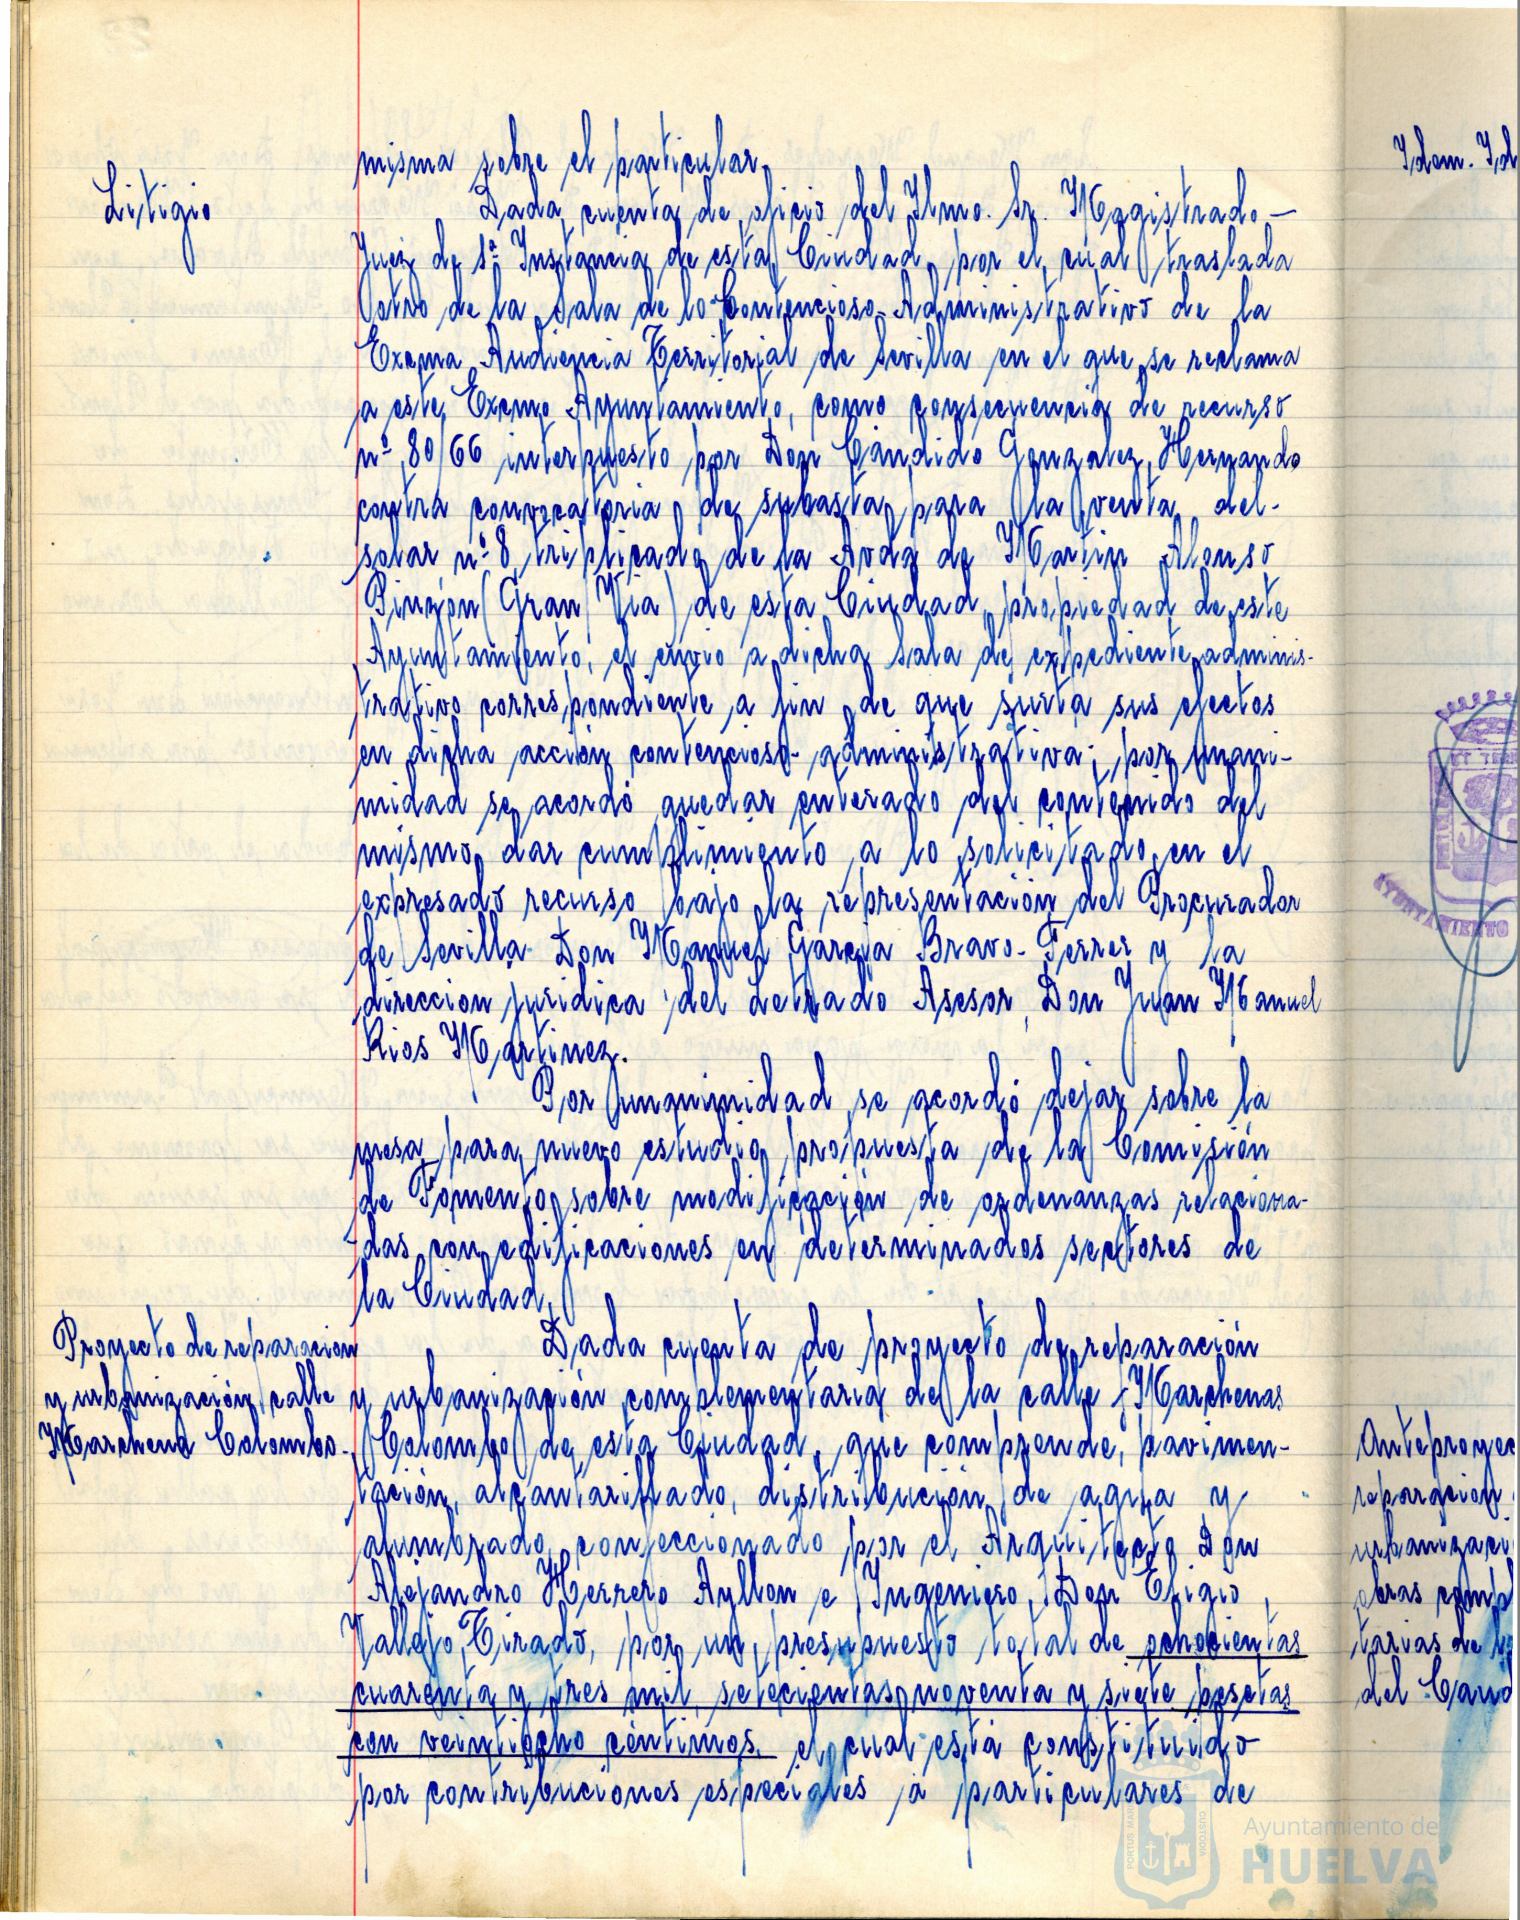 misma sobre el particular.
Litigio
Dada cuenta de oficio del Ilmo. Sr. Magistrado-
Juez de 1ª Instancia de esta Ciudad, por el cual traslada
otro de la Sala de lo Contencioso-Administrativo de la
Excma Audiencia Territorial de Sevilla en el que se reclama
a este Excmo Ayuntamiento, como consecuencia de recurso
nº 80/66 interpuesto por Don Cándido Gonzalez Hernando
contra convocatoria de subasta para la venta del
solar nº 8 triplicado de la Avda de Martin Alonso
Pinzón (Gran Via) de esta Ciudad, propiedad de este
Ayuntamiento, el envio a dicha Sala de expediente adminis-
trativo correspondiente a fin de que surta sus efectos
en dicha acción contencioso-administrativa; por unani-
midad se acordó quedar enterado del contenido del
mismo, dar cumplimiento a lo solicitado en el
expresado recurso bajo la representación del Procurador
de Sevilla Don Manuel Garcia Bravo-Ferrer y la
direccion juridica del Letrado Asesor, Don Juan Manuel
Rios Martinez.
Por unanimidad se acordó dejar sobre la
mesa para nuevo estudio propuesta de la Comisión
de Fomento, sobre modificación de ordenanzas relaciona-
das con edificaciones en determinados sectores de
la Ciudad.
Proyecto de reparacion
y urbanización calle
Marchena Colombo.
Dada cuenta de proyecto de reparación
y urbanización complementaria de la calle Marchenas
Colombo de esta Ciudad, que comprende, pavimen-
tación, alcantarillado, distribución de agua y
alumbrado, confeccionado por el Arquitecto Don
Alejandro Herrero Ayllon e Ingeniero, Don Eligio
Vallejo Tirado, por un presupuesto total de ochocientas
cuarenta y tres mil, setecientas noventa y siete pesetas
con veintiocho céntimos, el cual está constituido
por contribuciones especiales a particulares de
Idem. Id
AYUNTAMIENTO
Anteproyec
reparación
urbanizaci
obras compl
tarias de
del Card
Ayuntamiento de
HUELVA